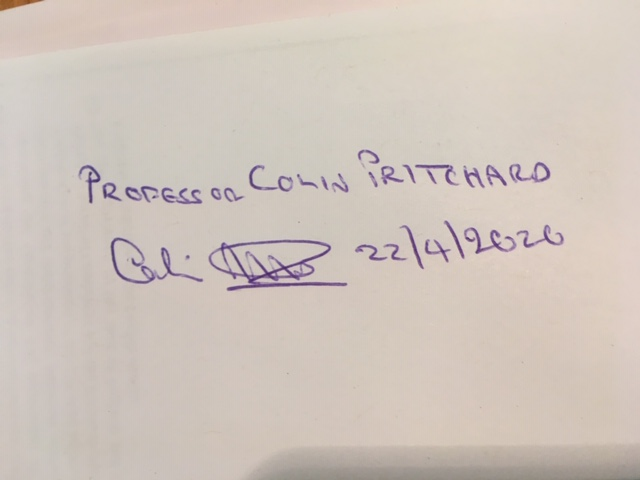 PROFESSOR COLIN PRITCHARD
Colin 22/4/2020